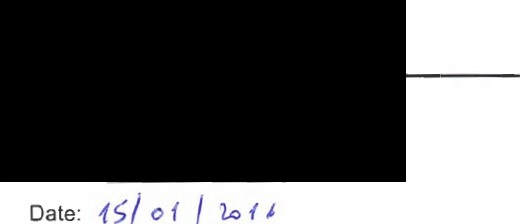 Date: 15/01/2016